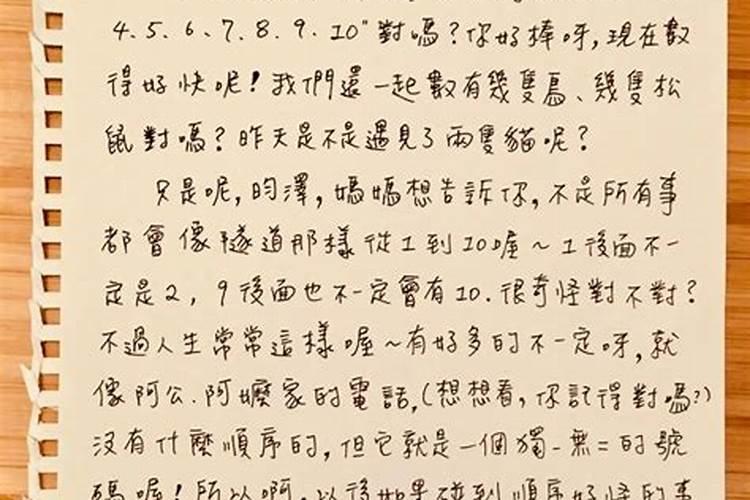 4、5、6、7、8、9、10"對嗎?你好棒呀,現在數
得好快呢!我們還一起數有幾隻鳥、幾隻松
鼠對嗎?昨天是不是遇見了兩隻貓呢?
只是呢,昀澤,媽媽想告訴你,不是所有事
都會像隧道那樣從1到10喔~1後面不一
定是2,9後面也不一定會有10.很奇怪對不對?
不過人生常常這樣喔~有好多的不一定呀,就
像阿公.阿嬤家的電話,(想想看,你記得對嗎?)
沒有什麼順序的,但它就是一個獨一無二的號
碼喔!所以啊,以後如果碰到順序好怪的事